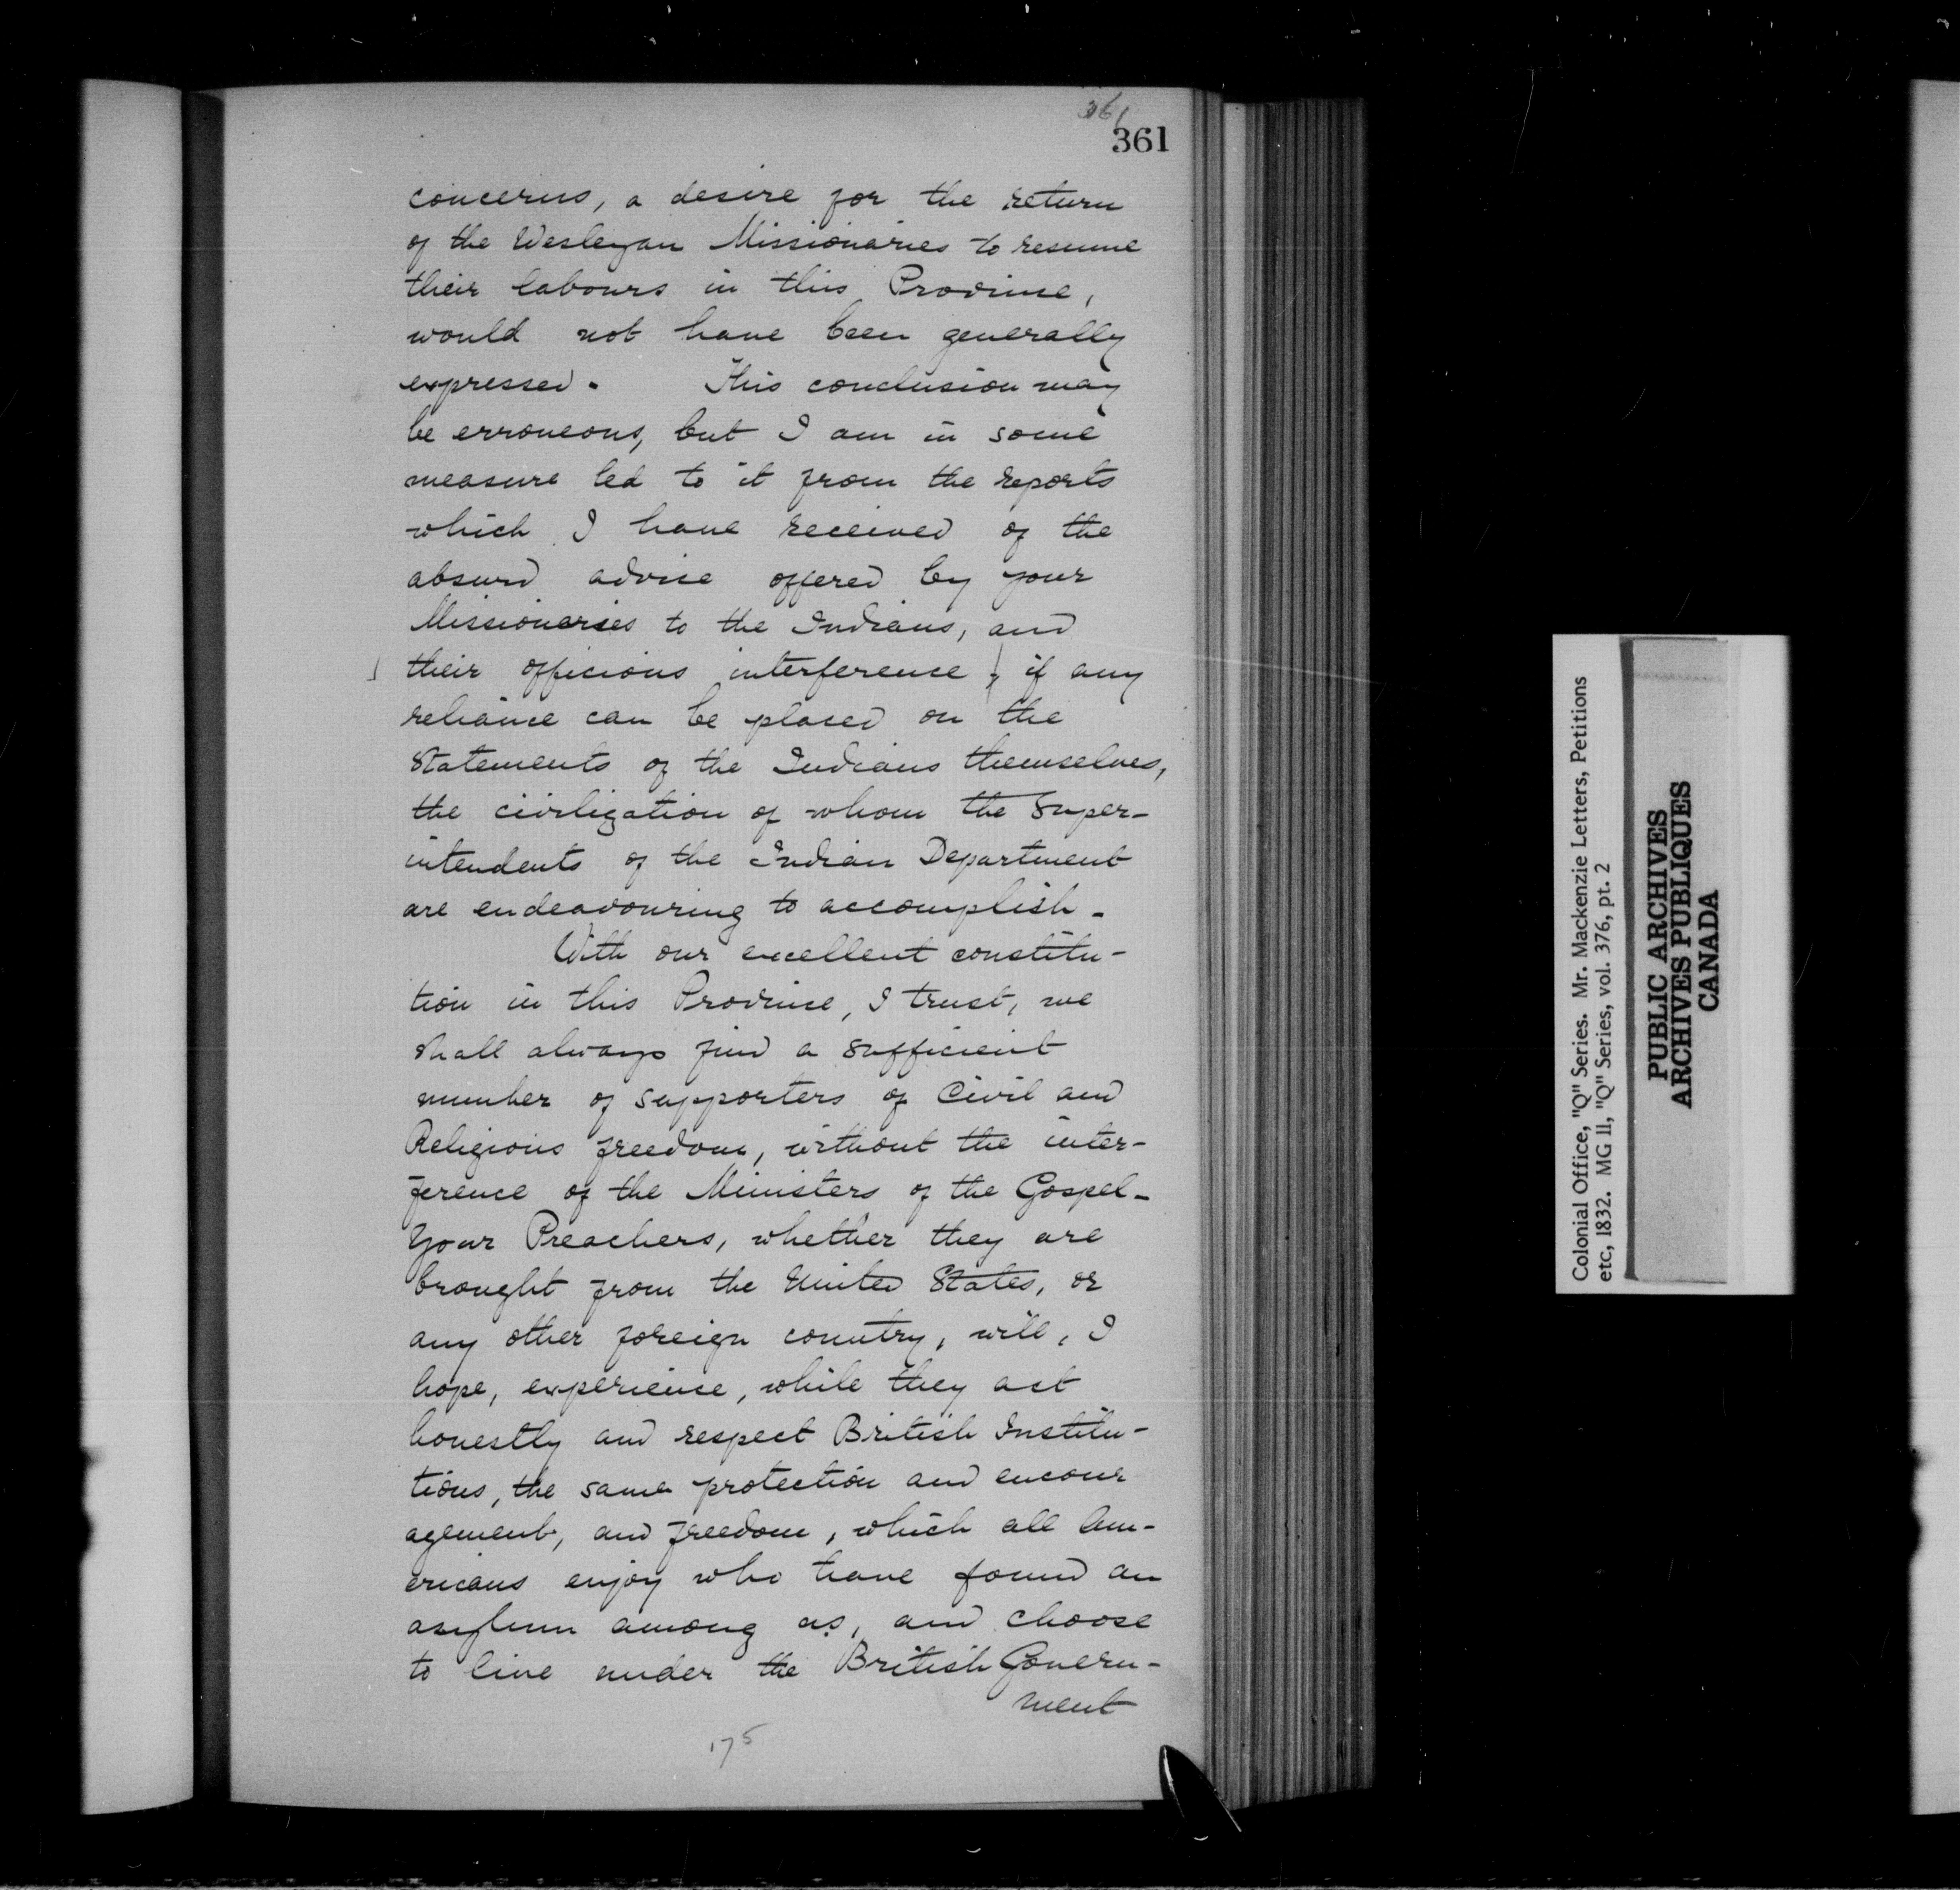 361
361
concerns, a desire for the return
of the Wesleyan Missionaries to resume
their labours in this Province,
would not have been generally
expressed. This conclusion may
be erroneous, but I am in some
measure led to it from the reports
which I have received of the
absurd advice offered by your
Missionaries to the Indians, and
their officious interference; if any
reliance can be placed on the
Statements of the Indians themselves,
the civilization of whom the Super-
intendents of the Indian Department
are endeavouring to accomplish.
With our excellent constitu-
tion in this Province, I trust, we
shall always find a sufficient
number of supporters of Civil and
Religious freedom, without the inter-
ference of the Ministers of the Gospel-
Your Preachers, whether they are
brought from the United States, or
any other foreign country, will, I
hope, experience, while they act
honestly and respect British Institu-
tions, the same protection and encour
agement, and freedom, which all Am-
ericans enjoy who have found an
asylum among us, and choose
to live under the British Govern-
ment
175
Colonial Office, "Q" Series. Mr. Mackenzie Letters, Petitions
etc, 1832. MG 11, "Q" Series, vol. 376, pt. 2
PUBLIC ARCHIVES
ARCHIVES PUBLIQUES
CANADA